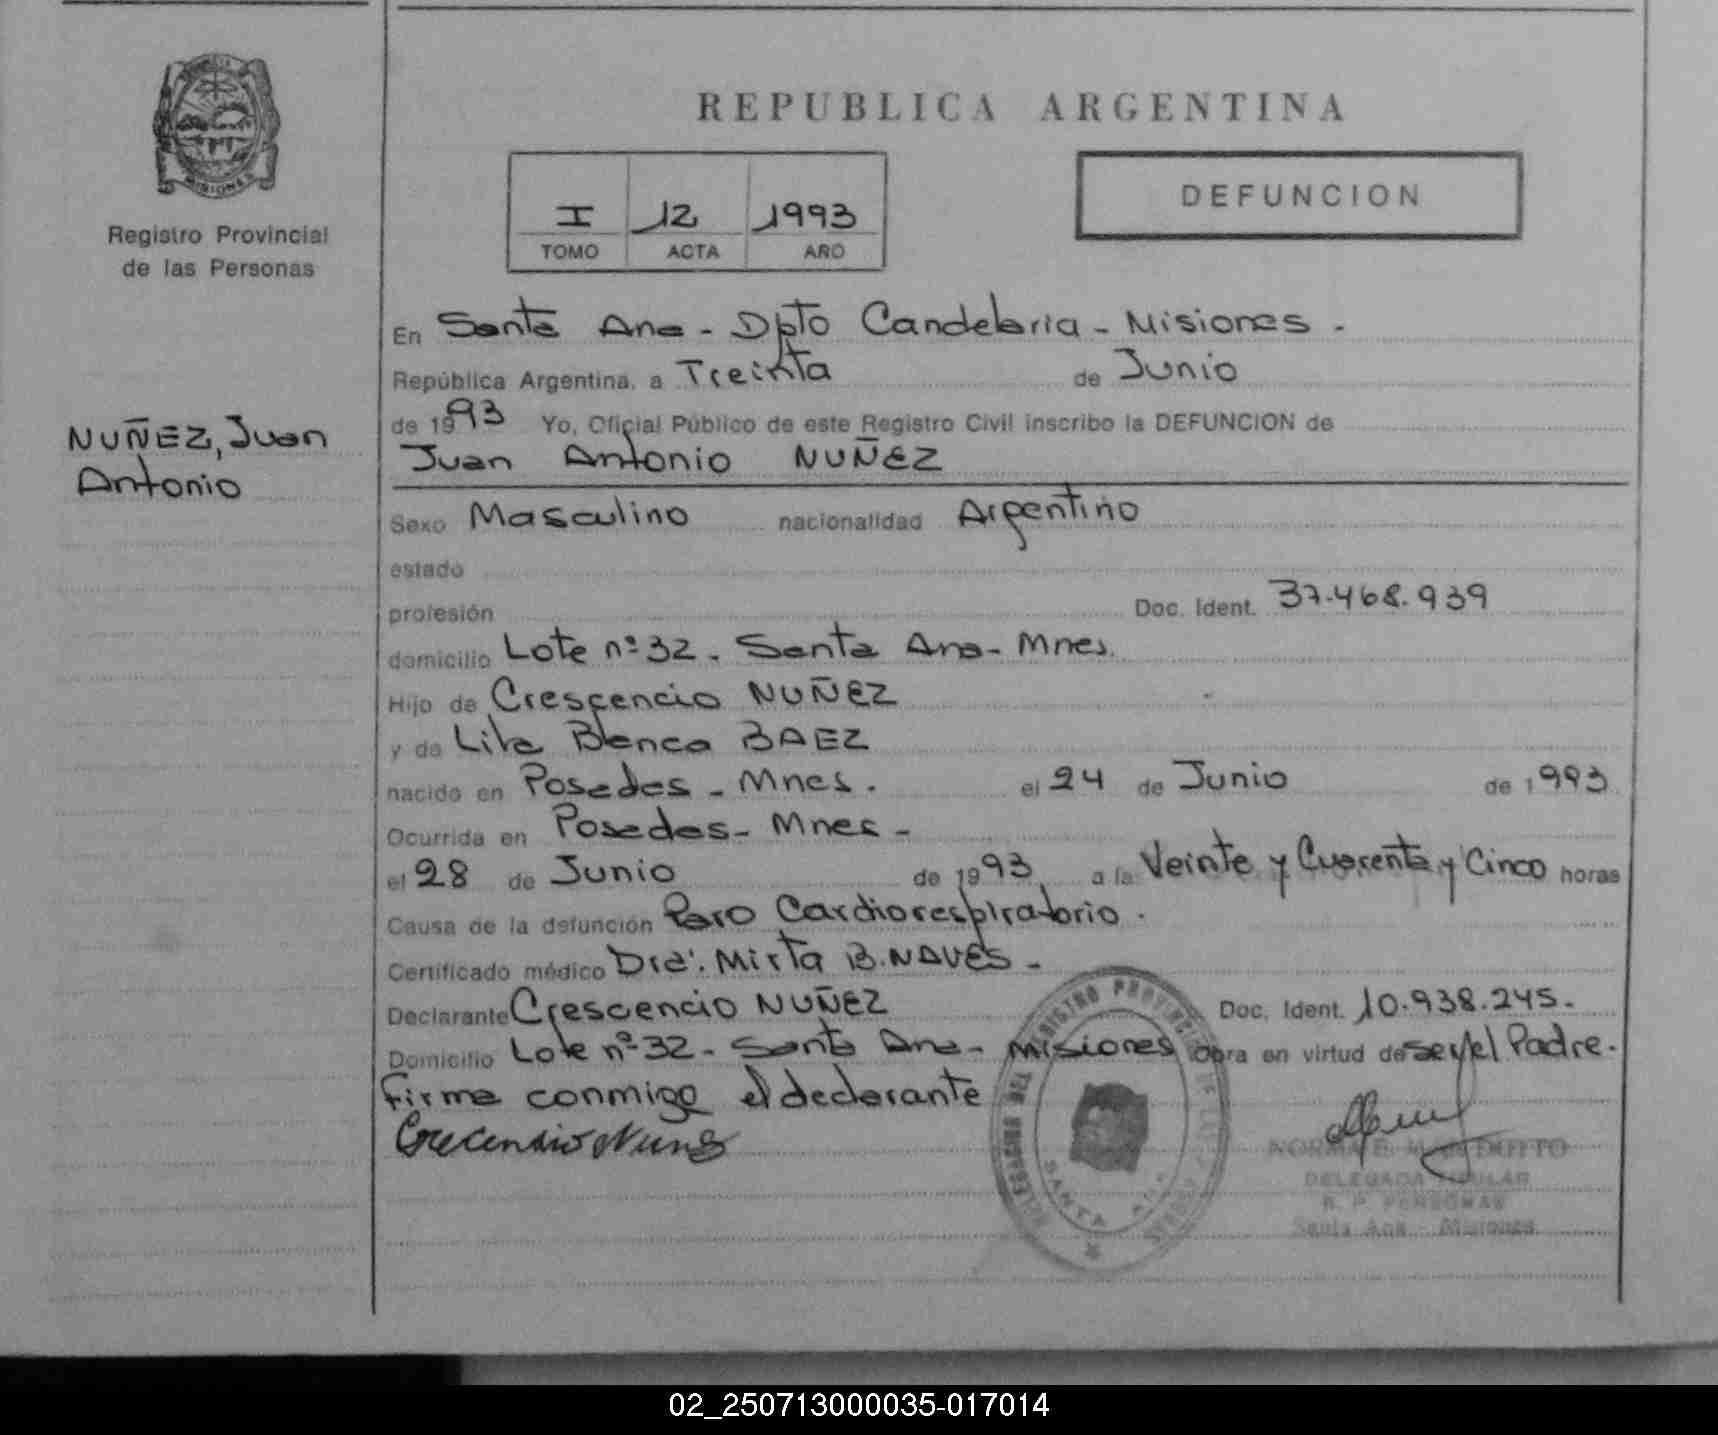 REPUBLICA ARGENTINA
MISIONES
Registro Provincial
de las Personas
I 12 1993
TOMO ACTA AÑO
DEFUNCION
NUÑEZ, Juan
Antonio
En Santa Ana - Dpto Candelaria - Misiones.
República Argentina, a Treinta de Junio
de 1993 Yo, Oficial Público de este Registro Civil inscribo la DEFUNCION de
Juan Antonio NUÑEZ
Sexo Masculino nacionalidad Argentino
estado
profesión Doc. Ident. 37.468.939
domicilio Lote nº 32. Santa Ana - Mnes.
Hijo de Crescencio NUÑEZ
y de Lila Blanca BAEZ
nacido en Posadas - Mnes. el 24 de Junio de 1993
Ocurrida en Posadas - Mnes -
el 28 de Junio de 1993 a la Veinte y Cuarenta y Cinco horas
Causa de la defunción Paro Cardiorespiratorio.
Certificado médico Dra. Mirta B. NAVES -
Declarante Crescencio NUÑEZ Doc. Ident. 10.938.245.
Domicilio Lote nº 32 - Santa Ana - Misiones Obra en virtud de ser el Padre.
Firma conmigo el declarante
Crecencio Nuñes
DELEGACION DEL REGISTRO PROVINCIAL DE LAS PERSONAS
SANTA ANA
NORMA E.
DELEGADA TITULAR
R. P. PERSONAS
Santa Ana - Misiones
02_250713000035-017014